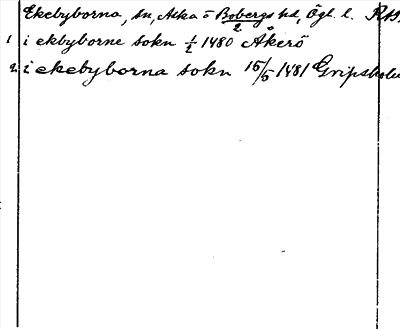 Ekebyborna, sn, Aska o Bobergs hd, Ögl. l. RAP.
2
1 i ekbyborne sokn 1/2 1480 Åkerö
2 i ekebyborna sokn 15/5 1481 Gripsholm